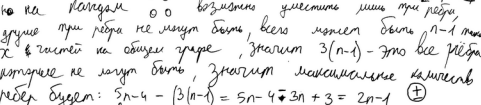 на каждом возможно уместить лишь три ребра,
другие три ребра не могут быть, всего может быть n-1 таких
частей на общем графе, значит 3(n-1) - это все рёбра
которые не могут быть, значит максимальное количество
рёбер будет: 5n-4-(3(n-1) = 5n-4-3n+3 = 2n-1